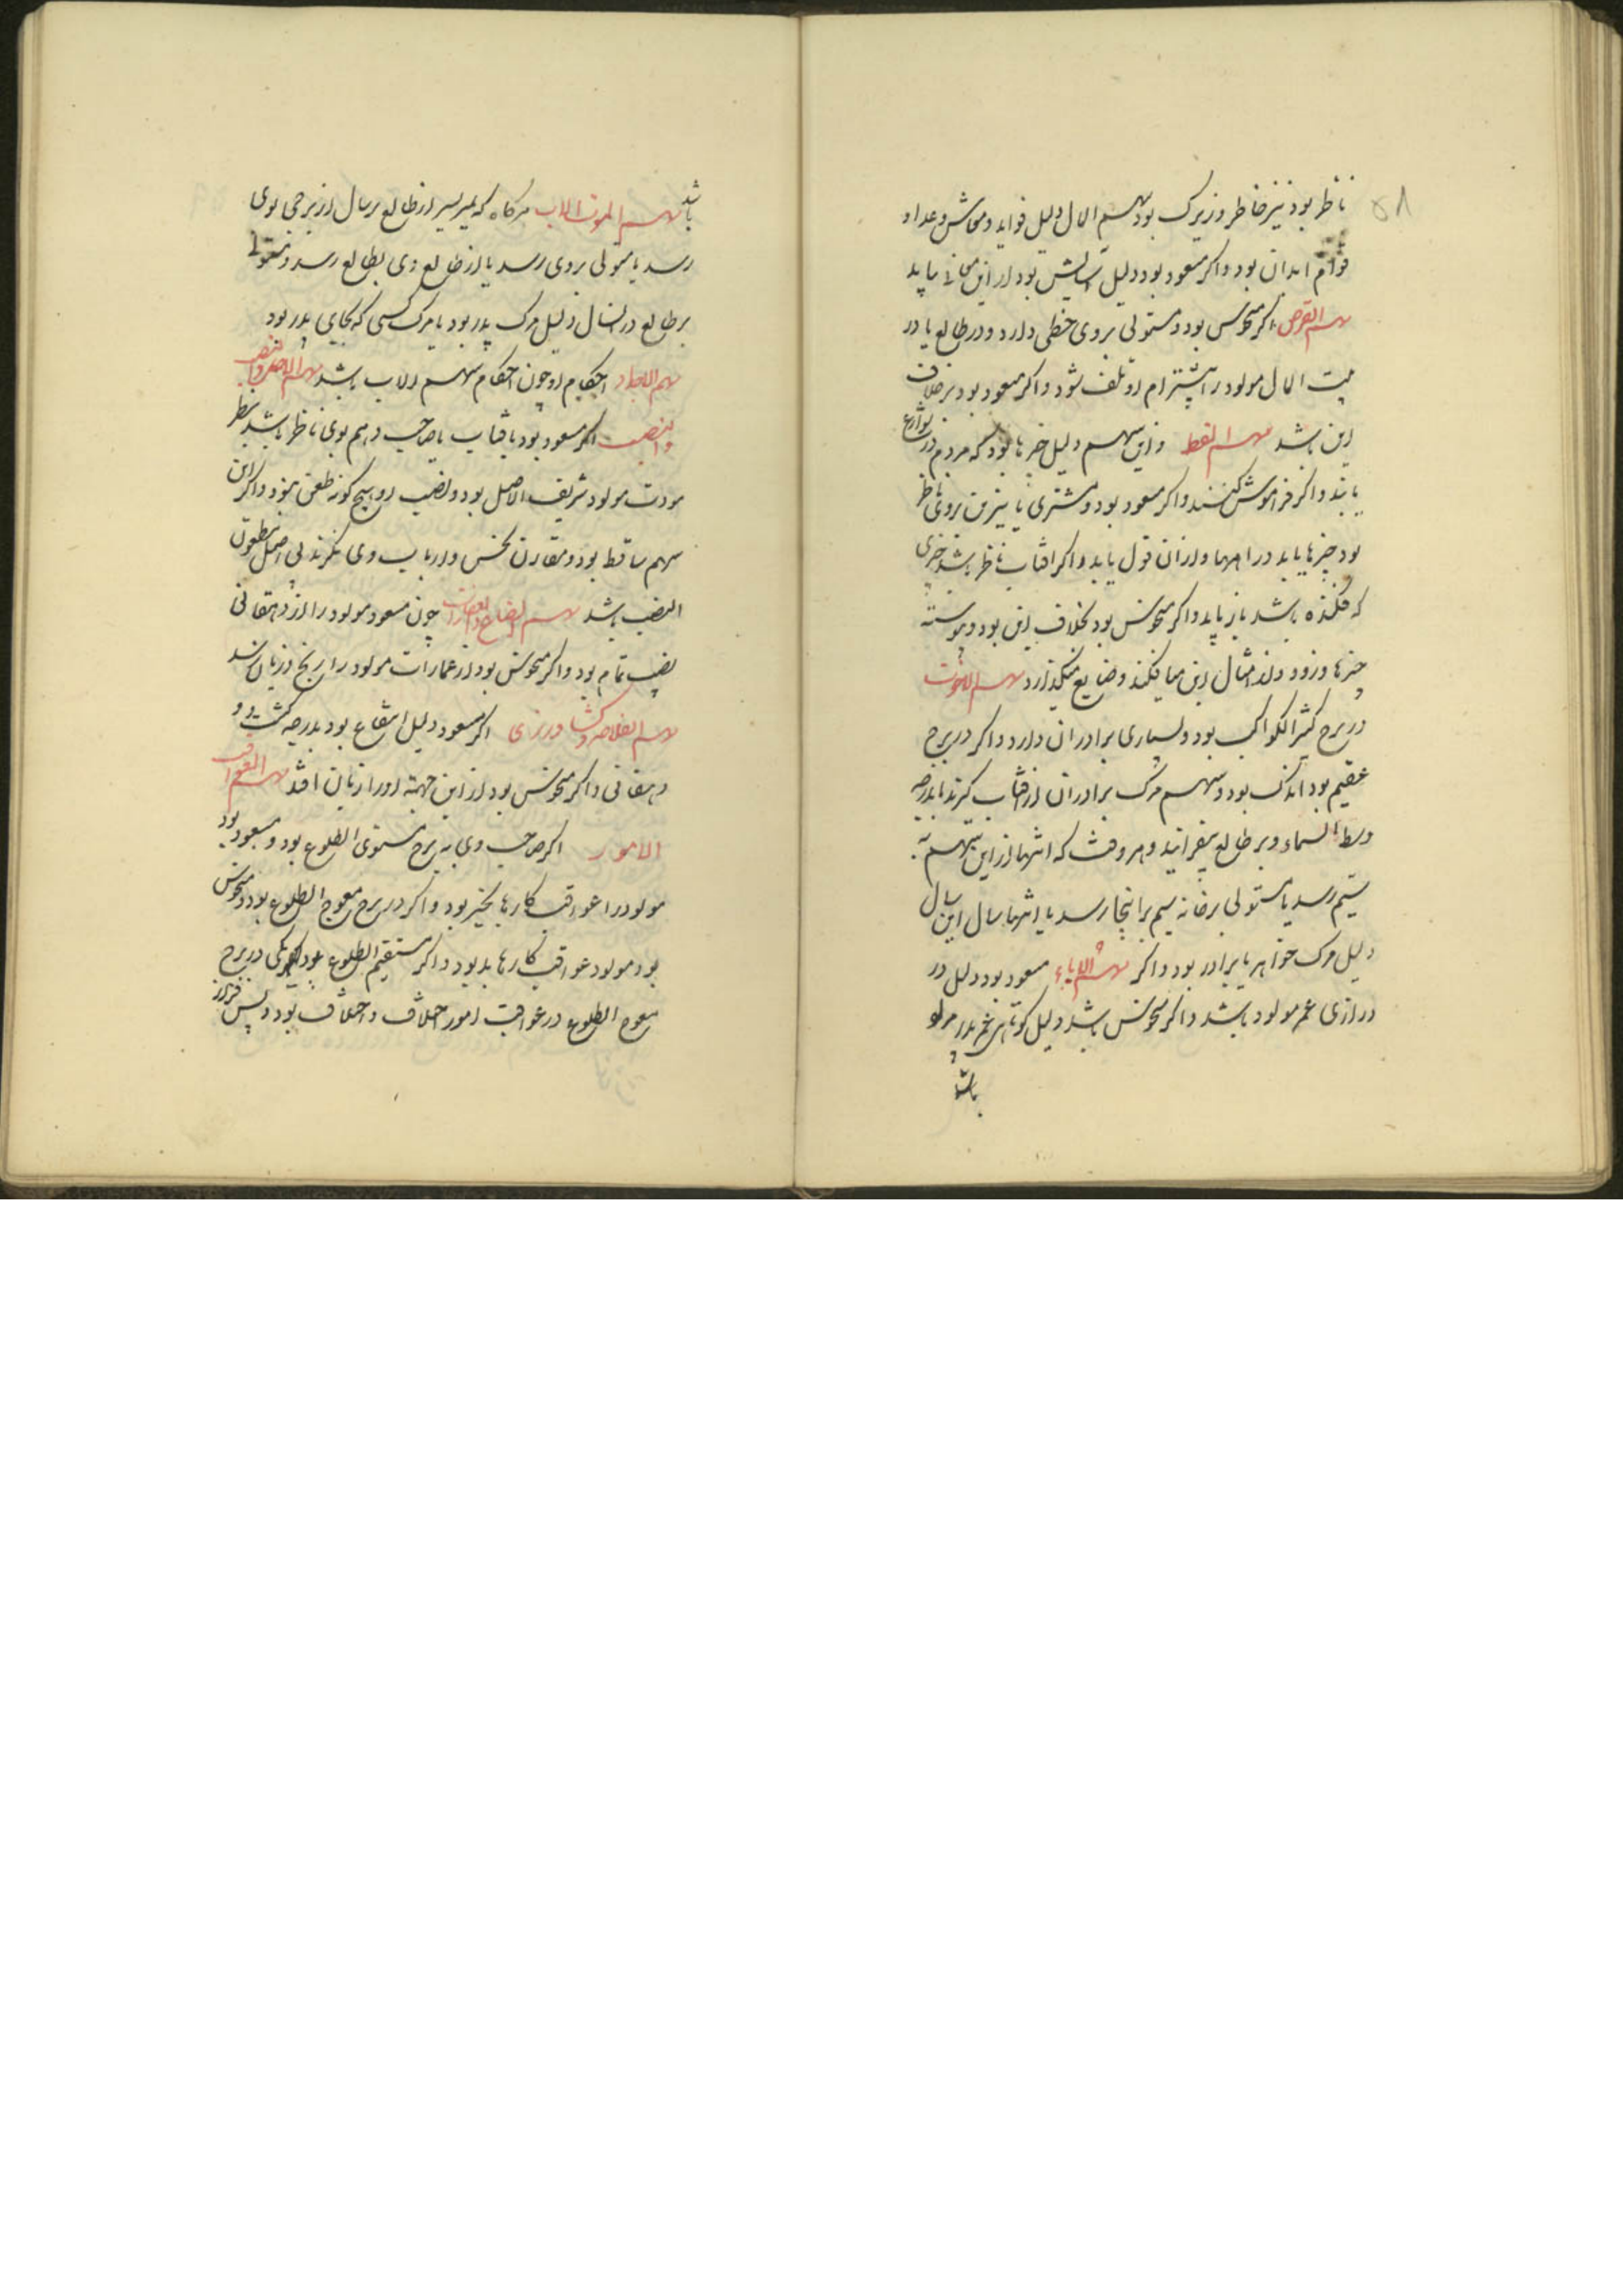 ۵۸
ناظر بود تیز خاطر و زیرک بود سهم المال دلیل فواید و معاش و عداد
قوام ابدان بود و اکر مسعود بود دلیل بود از این باید
سهم القرض اکر منحوس بود و مستولی بروی حظی دارد و در طالع یا در
بیت المال مولود را او تلف شود و اکر مسعود بود برخلاف
این باشد سهم اللقط و این سهم دلیل چیزها بود که مردم در شوارع
یابند و اکر فراموش کنند و اکر مسعود بود و مشتری یا نیرین بروی ناظر
بود چیزها یابد در راهها و از آن قول یابد و اکر افتاب ناظر باشد چیزی
که فکنده باشد باز یابد و اکر منحوس بود بخلاف این بود و پیوسته
چیزها و امثال این میافکند و ضایع میکذارد سهم الاخوت
در برج کثیر الکواکب بود و بسیاری برادران دارد و اکر در برج
عقیم بود اندک بود و سهم مرک برادران از افتاب کیرند تا بدرجه
وسط السماء و بر طالع بیفزایند و هر وقت که انتها از این سهم به
سیم رسد یا مستولی برخانه سیم برانجا رسد یا انتها سال این سال
دلیل مرک خواهر یا برادر بود و اکر سهم الاباء مسعود بود دلیل در
درازی عمر مولود باشد و اکر منحوس باشد دلیل کوتاهی عمر پدر مولود
باشد
باشد سهم الموت الاب هرکاه که بمیر سیر از طالع بسال از برجی بوی
رسد یا مستولی بروی رسد یا از طالع وی بطالع رسد و مستولی
بر طالع در انسال دلیل مرک پدر بود یا مرک کسی که بجای پدر بود
سهم الاجداد احکام او چون احکام سهم الاب باشد سهم الاصل و النصب
والنصب اکر مسعود بود یا افتاب یا صاحب سهم بوی ناظر باشد بنظر
مودت مولود شریف الاصل بود و نصب او هیچ کونه طعن نبود و اکر این
سهم ساقط بود و مقارن نحس و ارباب وی ننکرند بی اصل و مطعون
النصب باشد سهم الضیاع و العقارات چون مسعود مولود را از دهقانی
نصیب تمام بود و اکر منحوس بود از عمارات مولود را رنج و زیان رسد
سهم الفلاحه و کشاورزی اکر مسعود دلیل انتفاع بود بدرجه کشت و
دهقانی و اکر منحوس بود از این جهته او را زیان افتد سهم العواقب
الامور اکر صاحب وی به برج مستوی الطلوع بود و مسعود بود
مولود را عواقب کارها بخیر بود و اکر در برج معوج الطلوع بود و منحوس
بود مولود عواقب کارها بد بود و اکر مستقیم الطلوع بود و یکی در برج
معوج الطلوع در عواقب امور اختلاف و اختلاف بود و پس